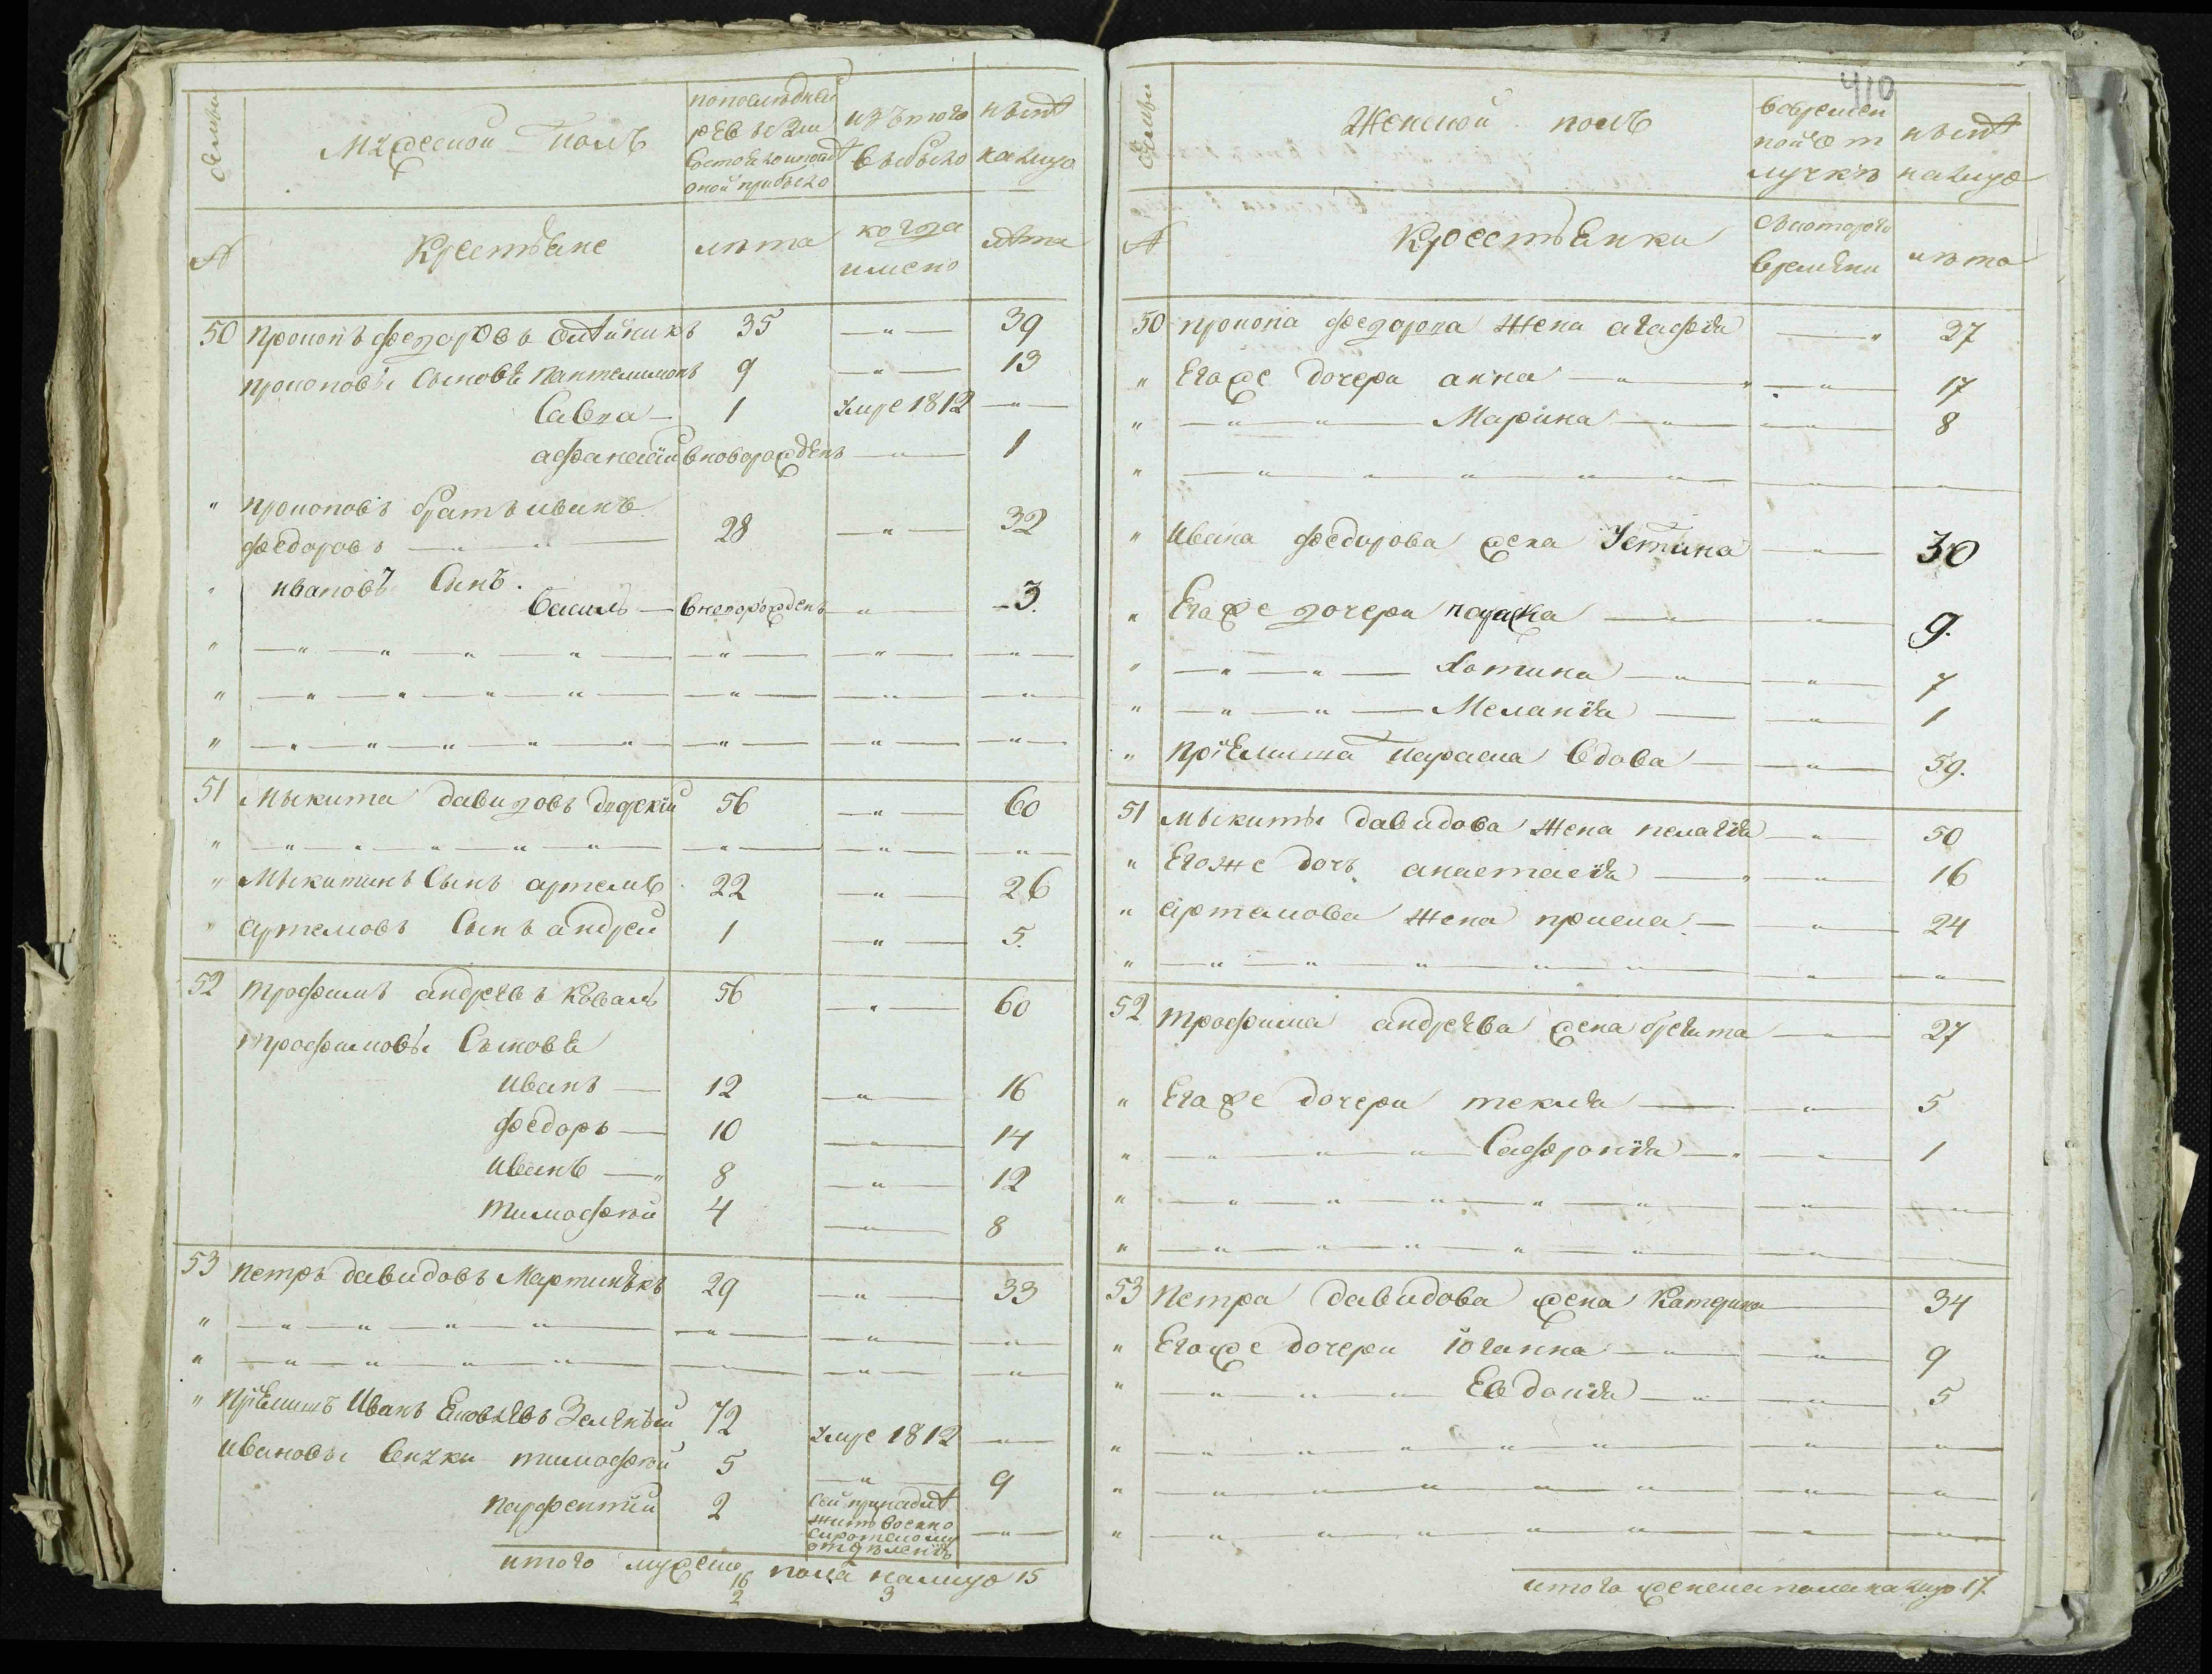 семьи
Мужеской Полъ
попоследней
ревизіи
состояло и после
оной прибыло
изъ того
выбыло
ныне
налицо
№
Крестьяне
лѣта
когда
имено
лѣта
50 прокопъ федоровъ 35 —"— 39
прокоповы сыновья пантелимонъ 9 —"— 13
Савка — 1 Умре 1812 —"—
афанасій вноворожденъ —"— 1
" прокоповъ братъ иванъ
федоровъ —"—"— 28 —"— 32
" ивановъ Сынъ
василь — вноворожденъ —"— 3.
51 Мыкита давидовъ 56 —"— 60
" Мыкитинъ Сынъ артемъ 22 —"— 26
" артемовъ Сынъ андрей 1 —"— 5.
52 трофимъ андреевъ Коваль 56 —"— 60
трофимовы Сыновья
иванъ — 12 —"— 16
федоръ — 10 —"— 14
иванъ — 8 —"— 12
тимофѣй 4 —"— 8
53 петръ давидовъ Мартинюкъ 29 —"— 33
" пріемишъ Иванъ Яковлевъ Зеленый 72 Умре 1812 —"—
ивановы внуки тимофѣй 5 —"— 9
парфентій 2 Сей
военно
сиротскому
отделенію —"—
итого мужеска пола налицо 15
16
2 3
410
семьи
Женской полъ
вовремен
ной от
лучкѣ
ныне
налицо
№
Крестьянки
Скоторого
времени
лѣта
50 прокопа федорова жена агафія —" 37
" Егоже дочери анна —"—"— 17
" —"—"— Марина —"—"— 8
" Ивана федорова жена Устина —"— 30
" Егоже дочери параска —"—"— 9.
" —"—"— хотина —"—"— 7
" —"—"— Меланія —"— 1
" пріемиша параска вдова —"— 59.
51 мыкиты давидова жена пелагія —"— 50
" Егоже дочь анастасія —"—"— 16
" артемова жена приска —"— 24
52 трофима андреева жена —"— 27
" Егоже дочери текля —"— 5
" —"—"— Сафронія —"— 1
53 Петра давидова жена Катерина — 34
" Егоже дочери юганна —"— 9
" —"—"— Евдокія —"— 5
итого женска пола налицо 17.